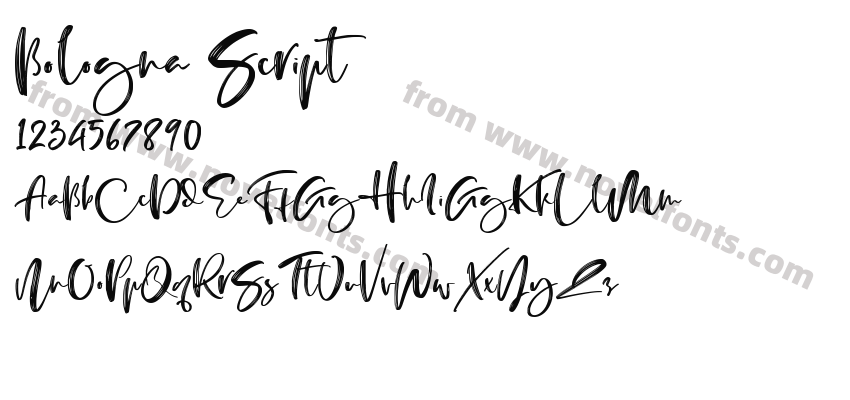 Bologna Script
1234567890
AaBbCcDdEeFfGgHhIiGgKkLlMm
NnOoPpQqRrSsTtUuVvWwXxYyZz
from www.novelfonts.com
from www.novelfonts.com